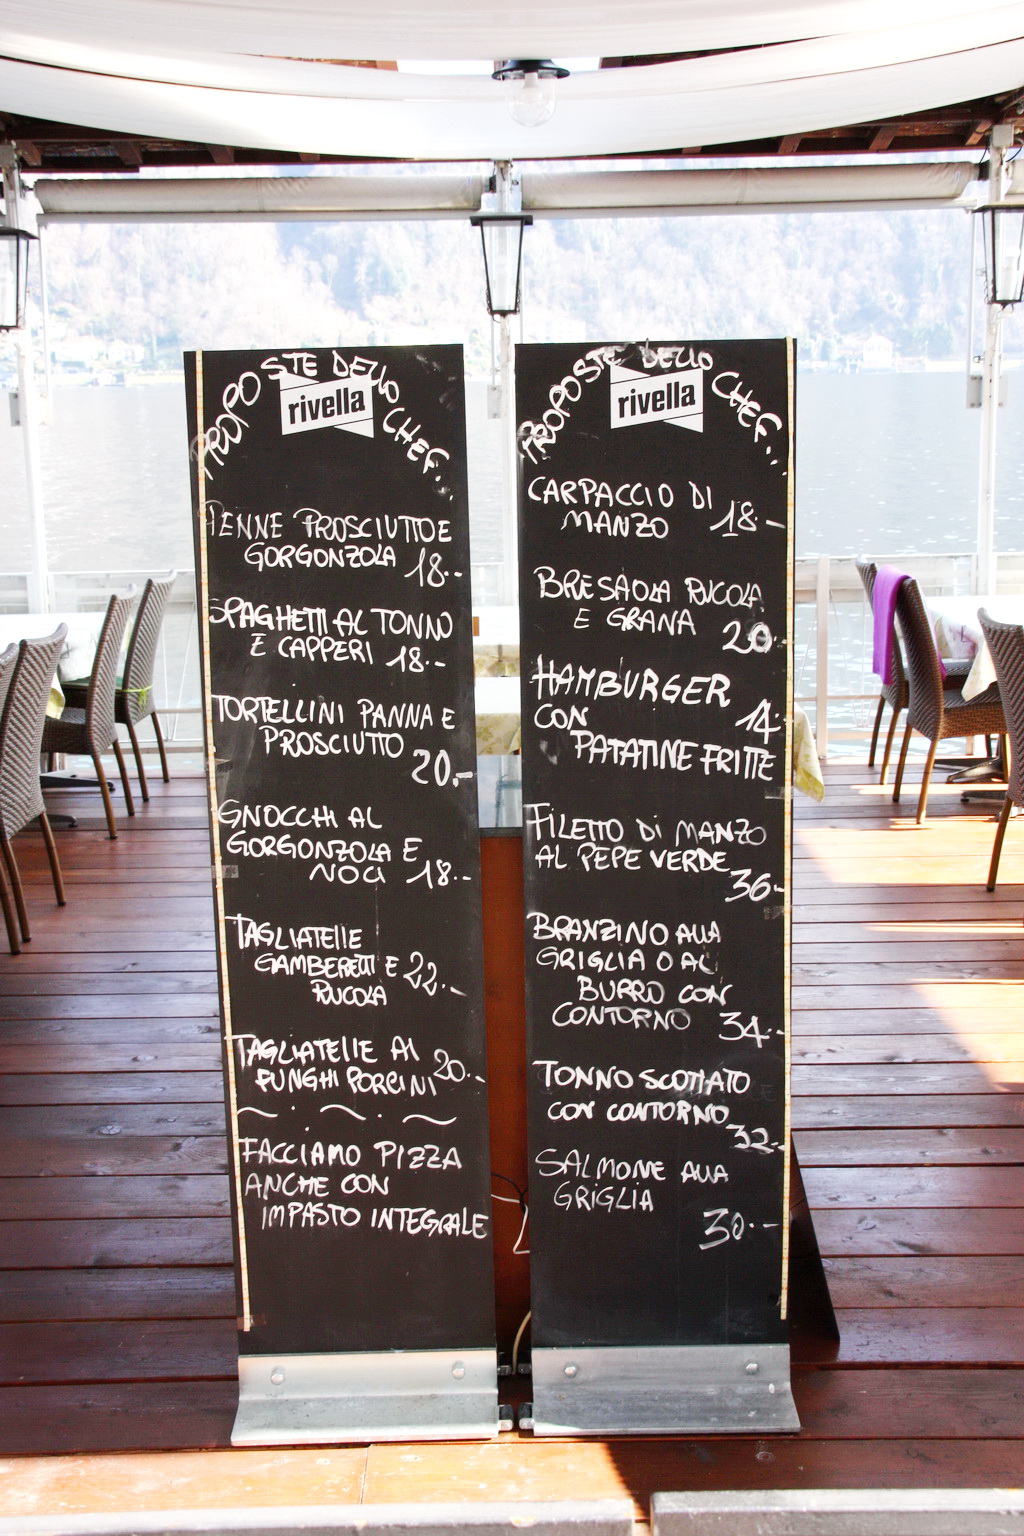 PROPOSTE DELLO CHEF...
rivella
PENNE PROSCIUTTO E
GORGONZOLA 18.-
SPAGHETTI AL TONNO
E CAPPERI 18.-
TORTELLINI PANNA E
PROSCIUTTO
20.-
GNOCCHI AL
GORGONZOLA E
NOCI 18.-
TAGLIATELLE
GAMBERETTI E 22.-
RUCOLA
TAGLIATELLE AI
FUNGHI PORCINI 20.-
~ . ~ . ~
FACCIAMO PIZZA
ANCHE CON
IMPASTO INTEGRALE
PROPOSTE DELLO CHEF...
rivella
CARPACCIO DI
MANZO 18.-
BRESAOLA RUCOLA
E GRANA 20.-
HAMBURGER
CON 14.-
PATATINE FRITTE
FILETTO DI MANZO
AL PEPE VERDE
36.-
BRANZINO ALLA
GRIGLIA O AL
BURRO CON
CONTORNO 34.-
TONNO SCOTTATO
CON CONTORNO
32.-
SALMONE ALLA
GRIGLIA
30.-